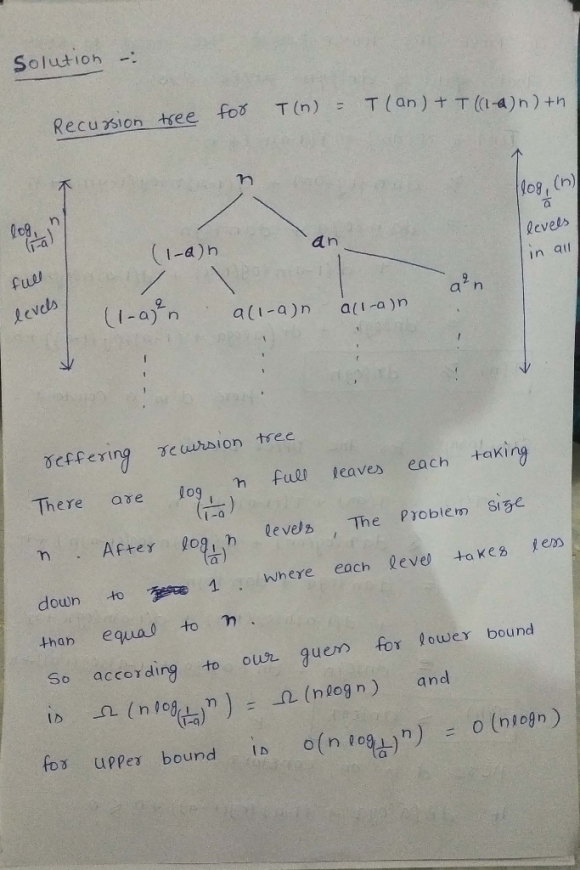 Solution -:
Recursion tree for T(n) = T(an) + T((1-a)n) + n
n
log_(1/(1-a)) n full levels
log_(1/a) (n) levels in all
(1-a)n an
(1-a)²n a(1-a)n a(1-a)n a²n
reffering recursion tree
There are log_(1/(1-a)) n full leaves each taking
n . After log_(1/a) n levels, The problem size
down to 1 . where each level takes less
than equal to n .
So according to our guess for lower bound
is Ω (n log_(1/(1-a)) n) = Ω (nlogn) and
for upper bound is O(n log_(1/a) n) = O(nlogn)